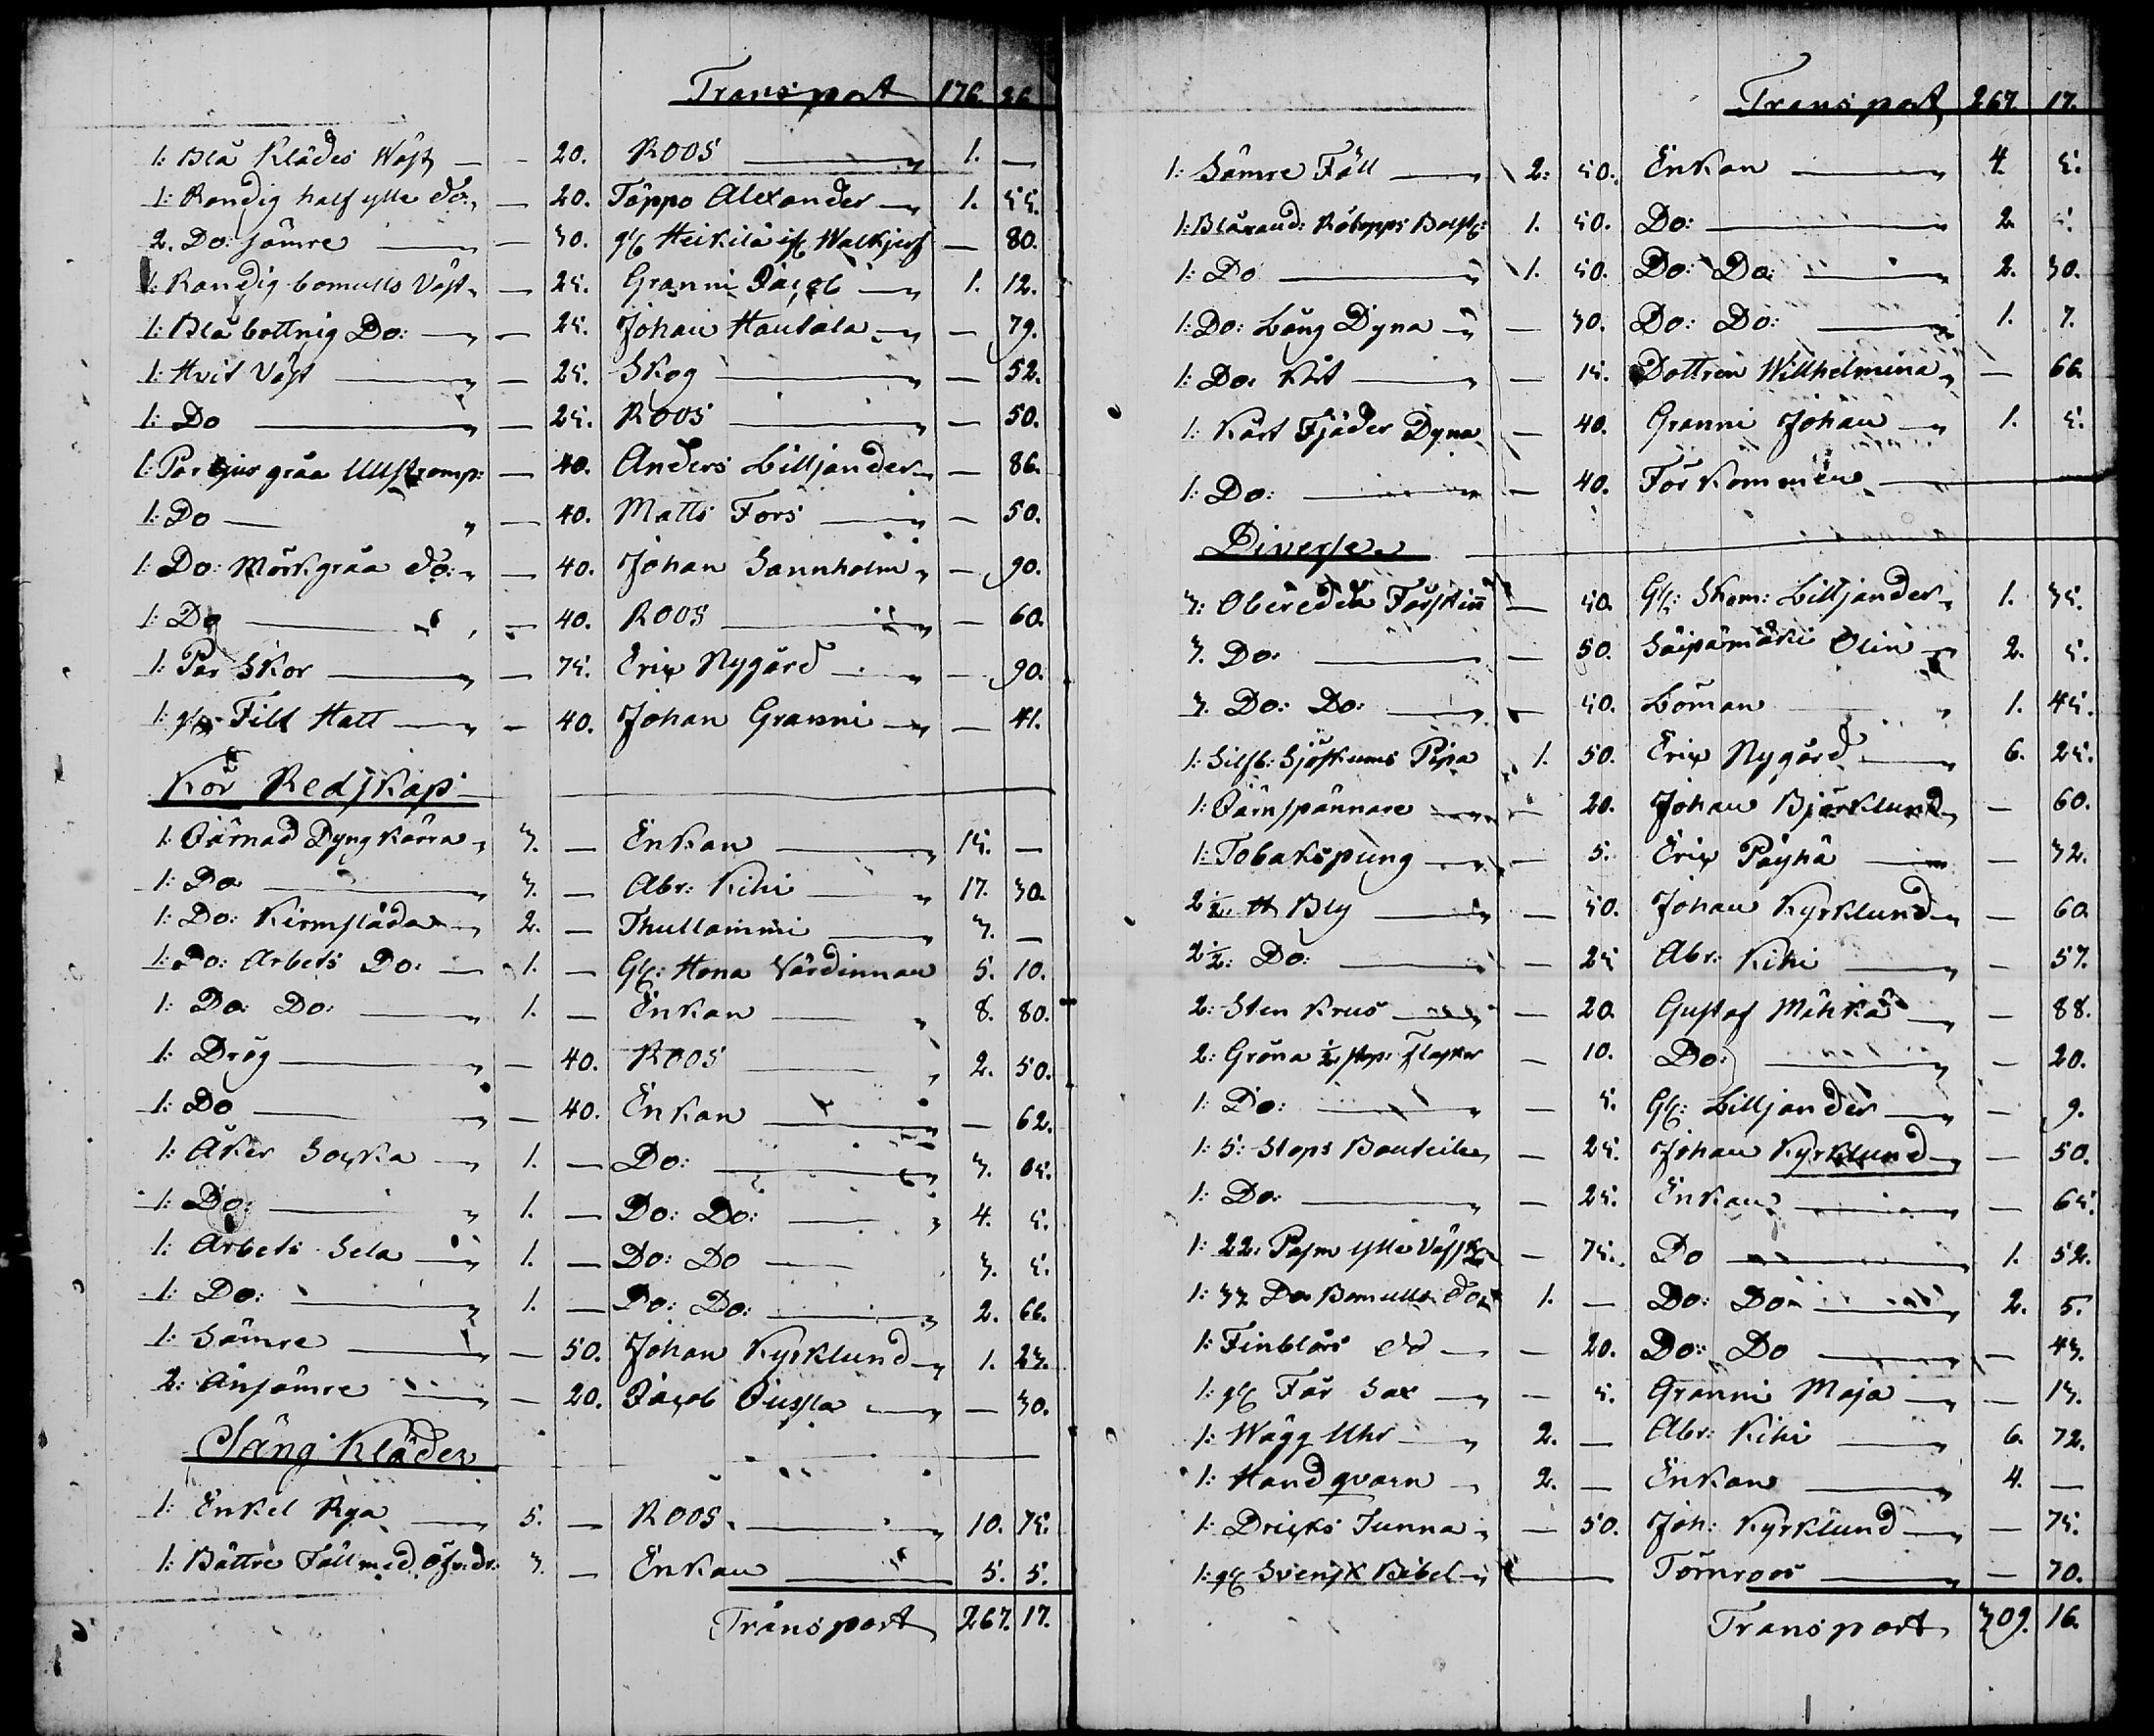 Transport 176. 36.
1: Blå Klädes Wäst — — 20. Roos — 1. —
1: Randig half ylle do: — 20. Täppo Alexander — 1. 55.
2. Do: sämre — — 30. gl: Heikilä — 80.
1: Randig bomulls Väst — 25. Granni Jacob — 1. 12.
1: Blåbottnig Do: — — 25. Johan Hautala — — 79.
1: Hvit Väst — — 25. Skog — — 52.
1: Do — — 25. Roos — — 50.
1: Par ljus gråa Ullstromp: — 40. Anders Lilljander — — 86.
1: Do — — 40. Matts Fors — — 50.
1: Do: Mörkgråa do: — 40. Johan Sannholm — 90.
1: Do — — 40. Roos — — 60.
1: Par Skor — — 75. Eric Nygård — — 90.
1: gl: Filt Hatt — — 40. Johan Granni — — 41.
Kör Redskap
1: Järnad Dyng kärra 3. — Enkan — 15. —
1: Do — 3. — Abr: Kihi — 17. 30.
1: Do: Kirmsläda 2. — Thullammi — 3. —
1: Do: Arbets Do: — 1. — Gl: Hena Värdinnan 5. 10.
1: Do: Do: — 1. — Enkan — 8. 80.
1: Drög — — 40. Roos — 2. 50.
1: Do — — 40. Enkan — — 62.
1: Åker Socka — 1. — Do: — 3. 05.
1: Do: — 1. — Do: Do: — 4. 5.
1: Arbets Sela — 1. — Do: Do — 3. 5.
1: Do: — 1. — Do: Do: — 2. 66.
1: Sämre — — 50. Johan Kyrklund — 1. 23.
2: Ännsämre — — 20. Jacob Jussla — — 30.
Säng Kläder
1: Enkel Rya — 5. — Roos — 10. 75.
1: Bättre Fäll med öfvdr: 3. — Enkan — 5. 5.
Transport 267. 17.
Transport 267. 17.
1: Sämre Fäll — 2: 50. Enkan — 4. 5.
1: Blårand: Bolst: 1. 50. Do: — 2. 5.
1: Do — 1. 50. Do: Do: — 2. 30.
1: Do: Lång Dyna — — 30. Do: Do: — 1. 7.
1: Do: Kårt — — 15. Dottren Willhelmina — 66.
1: Kårt Fjäder Dyna — 40. Granni Johan — 1. 5.
1: Do: — — 40. Förkommen —
Diverse
3: Oberedda Fårskinn — 50. Gl: Skom: Lilljander 1. 35.
3. Do: — — 50. Säipämäki Olin — 2. 5.
3. Do: Do: — — 50. Löman 1. 45.
1: Silfb: Sjöskums Pipa 1. 50. Eric Nygård — 6. 25.
1: Järnspännare — — 20. Johan Björklund — 60.
1: Tobakspung — — 5. Eric Päyhä — — 32.
2 ½ ℔ Bly — — 50. Johan Kyrklund — 60.
2 ½: Do: — — 25 Abr: Kihi — — 57.
2: Sten Krus — — 20. Gustaf Mähkä — — 88.
2: Gröna ½ stop: flaskor — 10. Do: — — 20.
1: Do: — — 5. Gl: Lilljander — — 9.
1: 5: Stops Bouteille — 25. Johan Kyrklund — 50.
1: Do: — — 25. Enkan — — 65.
1: 22: Pasm ylle Väfsked — 75. Do — 1. 52.
1: 33 Do: Bomulls do 1. — Do: Do — 2. 5.
1: Finblårs do — — 20. Do: Do — — 43.
1: gl: Får Sax — — 5. Granni Maja — — 13.
1: Wägg Uhr — 2. — Abr: Kihi — 6. 72.
1: Handqvarn — 2. — Enkan — 4. —
1: Dricks Tunna — 50. Joh: Kyrklund — — 75.
1: gl: Svensk Bibel — Törnroos — — 70.
Transport 309. 16.